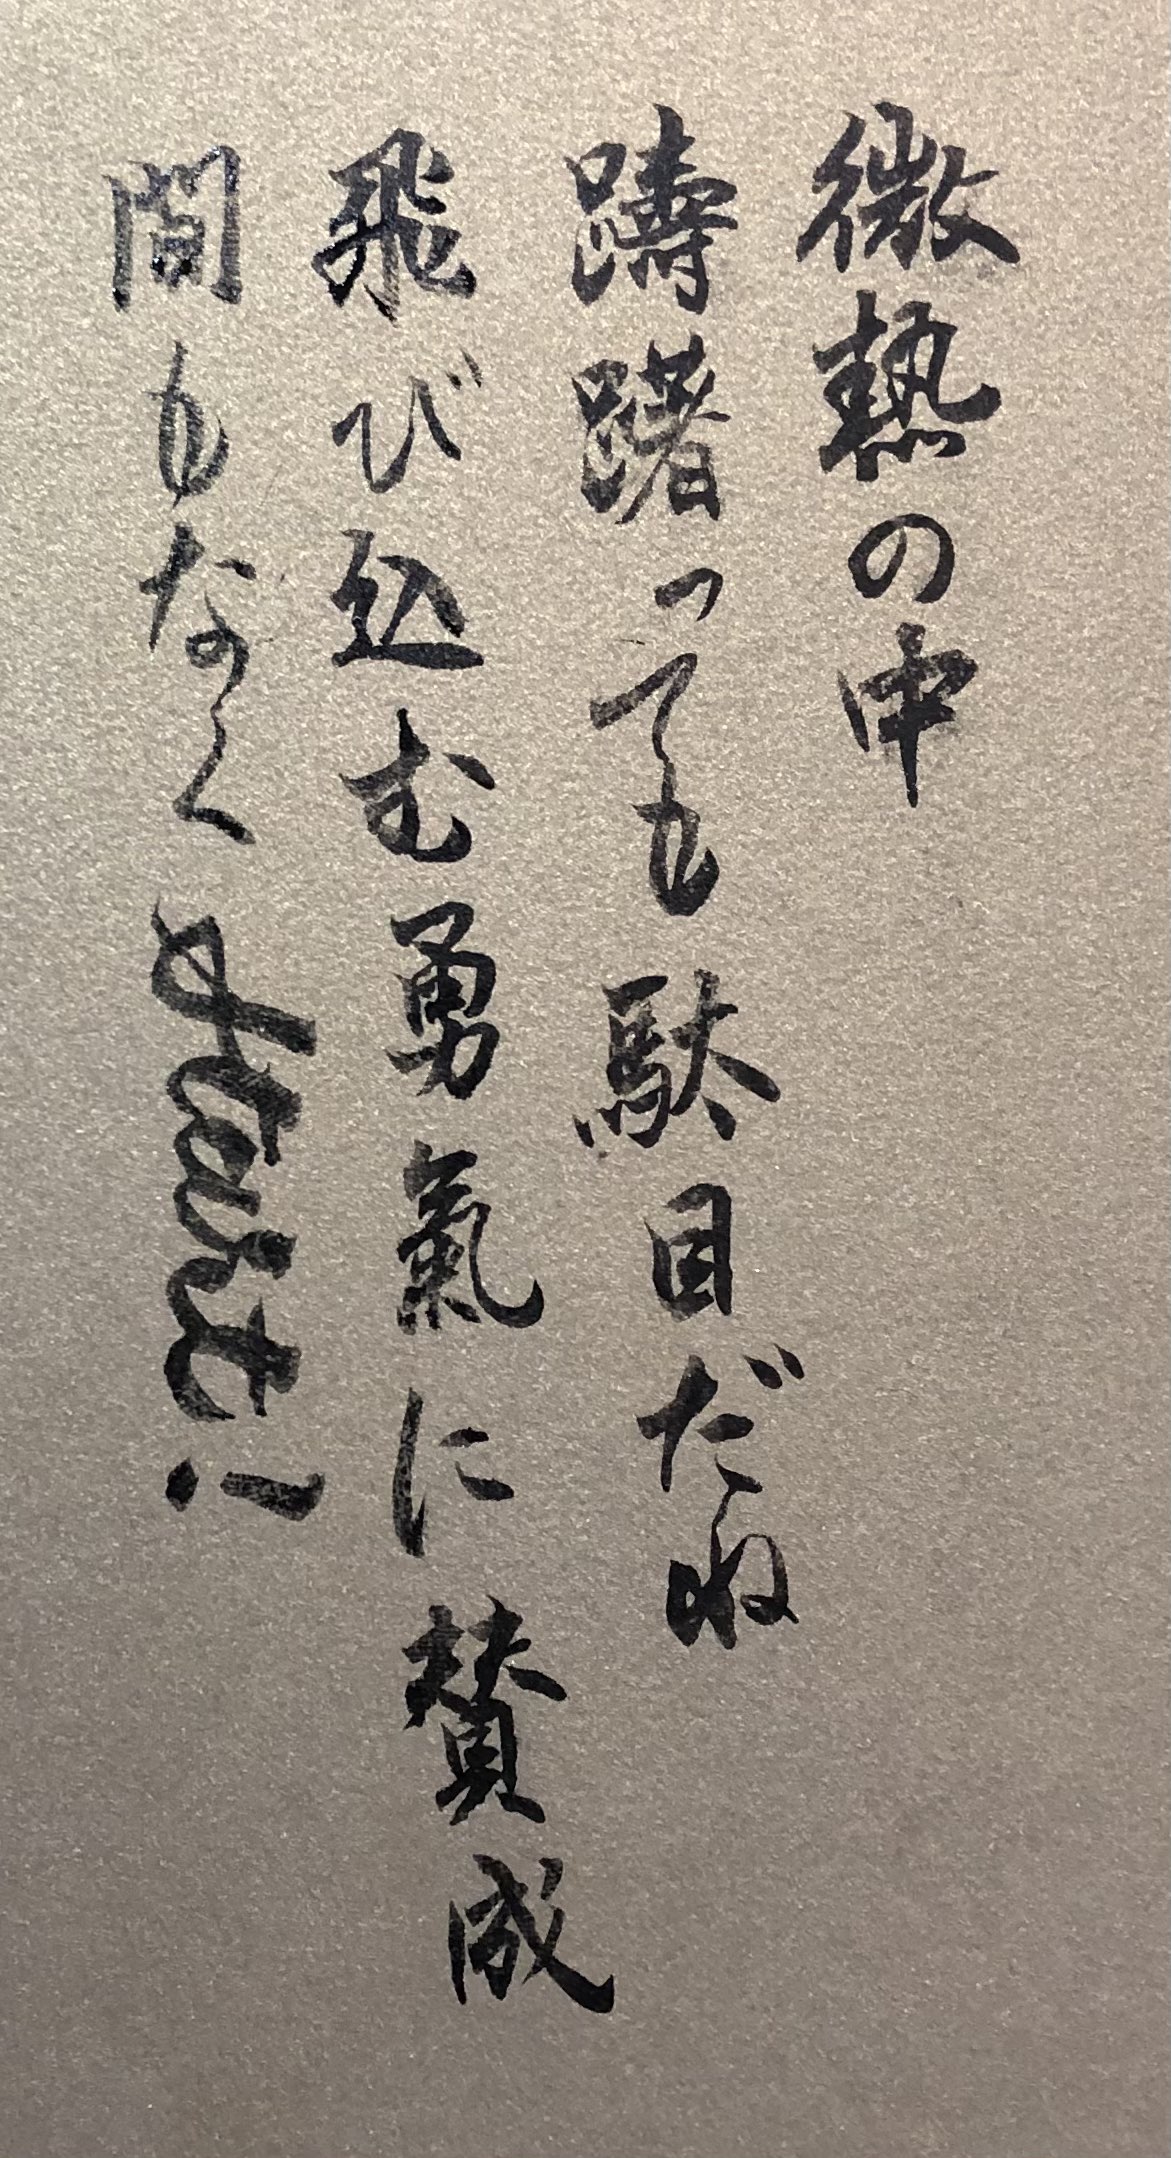 微熱の中
躊躇っても駄目だね
飛び込む勇氣に賛成
間もなくStart!